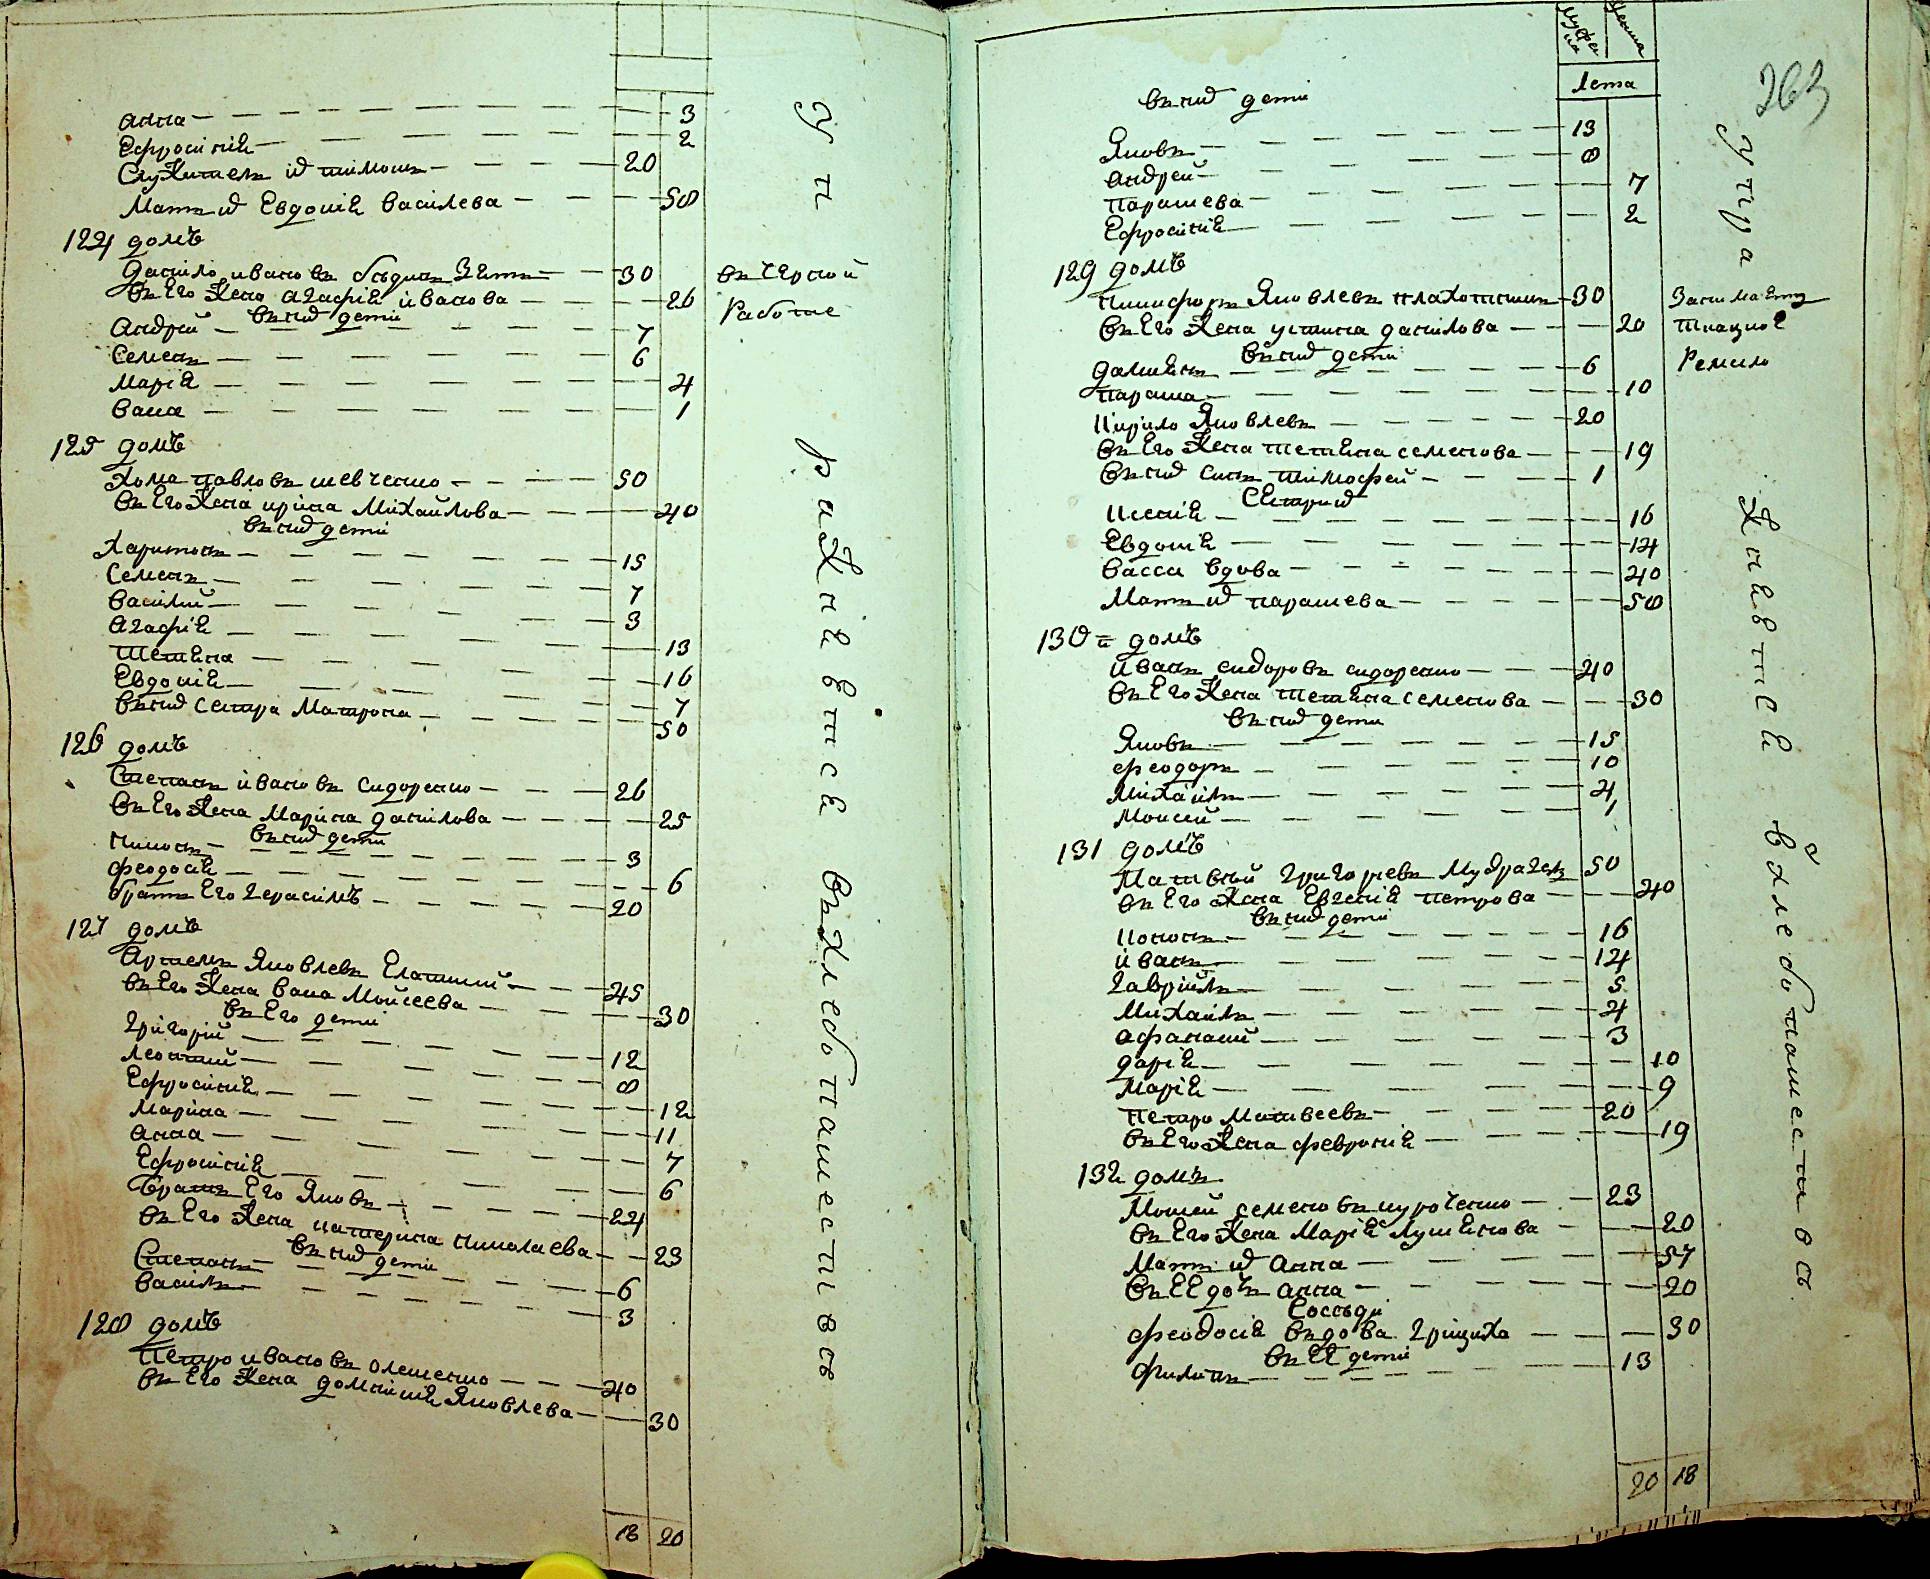 Анна — 3
Ефросінія — 2
Служитель их Тимошъ — 20
Мать их Евдокія Василева — 58
124 домъ
Данило Ивановъ бъдинъ Зеть — 30 въ черной
въ Его Жена Агафія Иванова — 26 Работе
въ них дети
Андрей — 7
Семенъ — 6
Марія — 4
Васа — 1
125 домъ
Хома Павловъ шевченко — 50
въ Его Жена Ирина Михайлова — 40
въ них дети
Харитонъ — 15
Семенъ — 7
Василий — 3
Агафія — 13
Тетяна — 16
Евдокія — 7
въ них сестра Матрона — 50
126 домъ
Степанъ Ивановъ Сидоренко — 26
въ Его Жена Марина Данилова — 25
въ них дети
Никонъ — 3
Феодосія — 6
братъ Его Герасимъ — 20
127 домъ
Артемъ Яковлевъ — 45
въ Его Жена Васа Мойсеева — 30
въ Его дети
Григорій — 12
Леонтий — 8
Ефросінія — 12
Марина — 11
Анна — 7
Ефросінія — 6
братъ Его Яковъ — 24
въ Его Жена Катерина Николаева — 23
въ них дети
Степанъ — 6
Василь — 3
128 домъ
Петро Ивановъ Олешенко — 40
въ Его Жена Домникия Яковлева — 30
18 20
Уп
ражнявтся
въ хлебопашествовъ
мужеска женска
263
Лета
въ них дети
Яковъ — 13
Андрей — 8
Парашева — 7
Ефросінія — 2
129 домъ
Никифоръ Яковлевъ Плахотникъ — 30 Занимаетца
въ Его Жена Устина Данилова — 20 Ткацкое
въ них дети Ремило
Дамиянъ — 6
Параша — 10
Кирило Яковлевъ — 20
въ Его Жена Тетяна Семенова — 19
въ них синъ Тимофей — 1
Сестри их
Ксенія — 16
Евдокія — 14
Васса вдова — 40
Мать их Парашева — 58
130й домъ
Иванъ Сидоровъ Сидоренко — 40
въ Его Жена Тетяна Семенова — 30
въ них дети
Яковъ — 15
Феодоръ — 10
Михаилъ — 4
Моисей — 1
131 домъ
Матвей Григориевъ Мудрагель 50
въ Его Жена Евгенія Петрова — 40
въ них дети
Кононъ — 16
Иванъ — 14
Гаврийлъ — 5
Михаилъ — 4
Афанаший — 3
Дарія — 10
Марія — 9
Петро Матвеевъ — 20
въ Его Жена Февронія — 19
132 домъ
Моисей Семеновъ — 23
въ Его Жена Марія Лукянова — 20
Мать их Анна — 57
въ Ее дочь Анна — 20
Соседи
Феодосія вдова Грициха — 30
въ Ее дети
Филипъ — 13
20 18
упра
жнявтся
в хлебопашествовъ